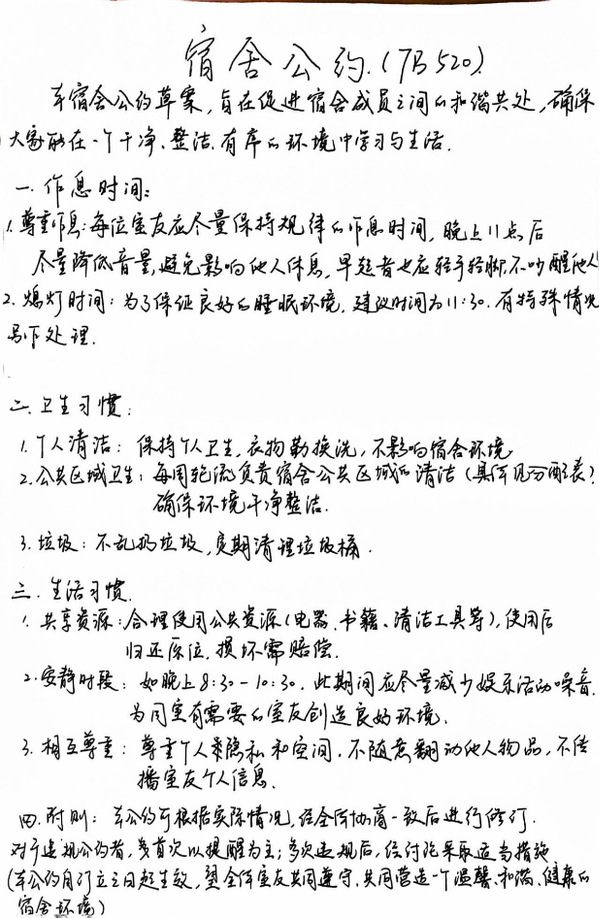 宿舍公约.(7B520)
本宿舍公约草案,旨在促进宿舍成员之间的和谐共处,确保
大家能在一个干净、整洁、有序的环境中学习与生活.
一.作息时间:
1.尊重作息:每位室友应尽量保持规律的作息时间,晚上11点后
尽量降低音量,避免影响他人休息,早起者也应轻手轻脚,不吵醒他人
2.熄灯时间:为了保证良好的睡眠环境,建议时间为11:30.有特殊情况
另作处理.
二.卫生习惯:
1.个人清洁:保持个人卫生,衣物勤换洗,不影响宿舍环境
2.公共区域卫生:每周轮流负责宿舍公共区域的清洁(具体见分配表)
确保环境干净整洁.
3.垃圾:不乱扔垃圾,定期清理垃圾桶.
三.生活习惯.
1.共享资源:合理使用公共资源(电器、书籍、清洁工具等),使用后
归还原位.损坏需赔偿.
2.安静时段:如晚上8:30-10:30.此期间应尽量减少娱乐活动噪音.
为同室有需要的室友创造良好环境.
3.相互尊重:尊重个人隐私和空间.不随意翻动他人物品,不传
播室友个人信息.
四.附则:本公约可根据实际情况,经全体协商一致后进行修订.
对于违规公约者,首次以提醒为主;多次违规后,经讨论采取适当措施
(本公约自订立之日起生效,望全体室友共同遵守.共同营造一个温馨、和谐、健康的
宿舍环境)